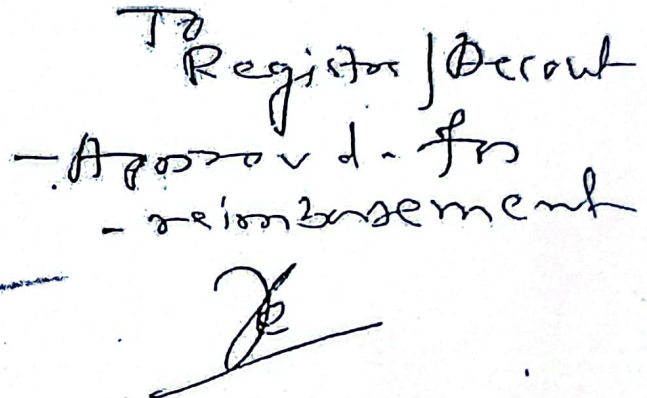 To
Registrar / Account
- Approved. for
- reimbursement